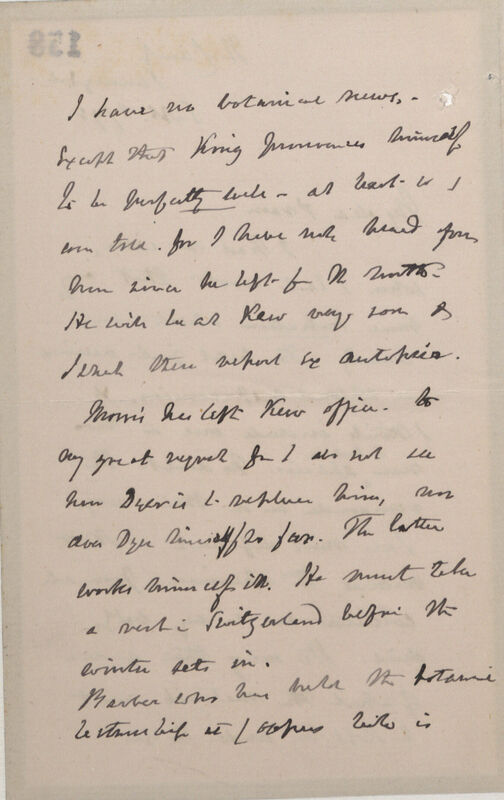 I have no botanical news,-
Except that King pronounces himself
to be perfectly well - at least so I
am told. for I have not heard from
him since he left for the north.
He will be at Kew very soon &
I shall then report ex autopsia.
Morris has left Kew office - to
my great regret for I do not see
how Dyer is to replace him, nor
does Dyer himself so far. The latter
works himself ill. He must take
a rest in Switzerland before the
winter sets in.
Barber who has held the botanic
lectureship at Coopers Hill is